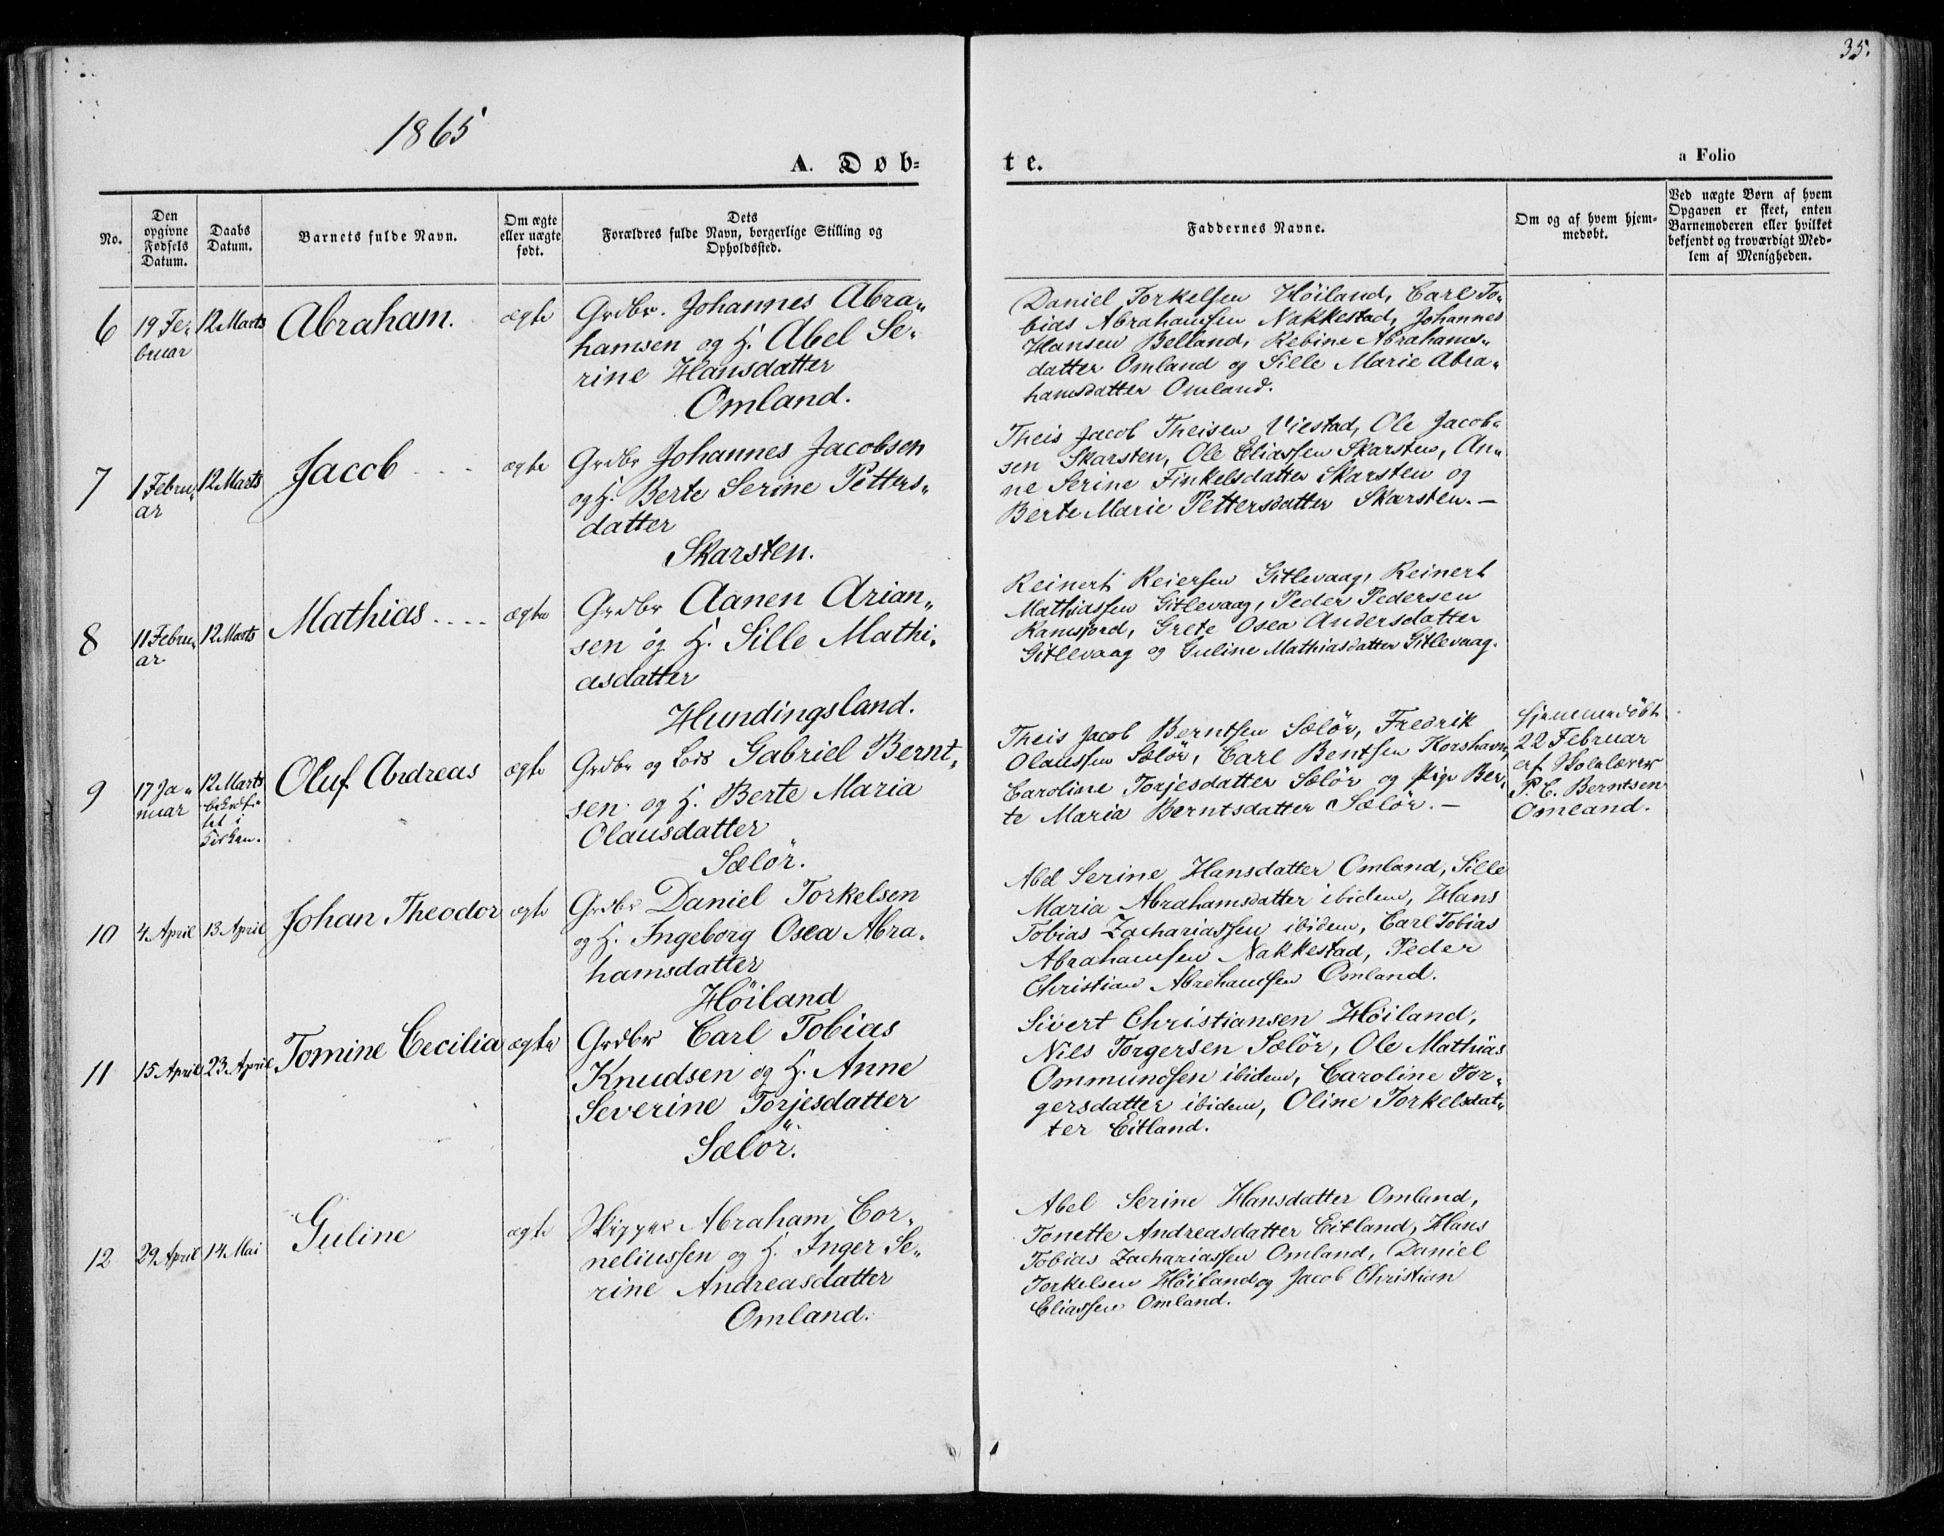 35.
1865
A. Døb-
te.
a Folio
No.
Den
opgivne
Fødsels
Datum.
Daabs
Datum.
Barnets fulde Navn.
Om ægte
eller uægte
født.
Dets
Forældres fulde Navn, borgerlige Stilling og
Opholdssted.
Faddernes Navne.
Om og af hvem hjem-
medøbt.
Ved uægte Børn af hvem
Opgaven er skeet, enten
Barnemoderen eller hvilket
bekjendt og troværdigt Med-
lem af Menigheden.
6
19 Fe-
bruar
12 Marts
Abraham.
ægte
Grdbr. Johannes Abra„
hamsen og H. Abel Se„
rine Hansdatter
Omland.
Daniel Torkelsen Höiland, Carl To„
bias Abrahamsen Nakkestad, Johannes
Hansen Belland, Rebine Abrahams„
datter Omland og Sille Marie Abra„
hamsdatter Omland.
7
1 Febru„
ar
12 Marts
Jacob
ægte
Grdbr Johannes Jacobsen
og H. Berte Serine Petters„
datter
Skarsten.
Theis Jacob Theisen Viestad, Ole Jacob„
sen Skarsten, Ole Eliassen Skarsten, An„
ne Serine Finkelsdatter Skarsten og
Berte Marie Pettersdatter Skarsten. —
8
11 Febru„
ar
12 Marts
Mathias
ægte
Grdbr Aanen Arian„
sen og H. Sille Mathi„
asdatter
Hundingsland.
Reinert Reiersen Gitlevaag, Reinert
Mathiassen Gitlevaag, Peder Pedersen
Ramsjord, Grete Osea Andersdatter
Gitlevaag og Guline Mathiasdatter Gitlevaag.
9
17 Ja„
nuar
12 Marts
bekræf„
tet i
Kirken.
Oluf Andreas
ægte
Grdbr og Lods Gabriel Bernt„
sen og H. Berte Maria
Olausdatter
Sælör.
Theis Jacob Berntsen Sælör, Fredrik
Olaussen Sælör, Carl Bentsen Korshavn,
Caroline Torjesdatter Sælör og Pige Ber„
te Maria Berntsdatter Sælör. —
Hjemmedöbt
22 Februar
af Skolelærer
P. C. Berntsen
Omland.
10
4 April
13 April
Johan Theodor
ægte
Grdbr Daniel Torkelsen
og H. Ingeborg Osea Abra„
hamsdatter
Höiland
Abel Serine Hansdatter Omland, Sille
Maria Abrahamsdatter ibidem, Hans
Tobias Zachariassen ibidem, Carl Tobias
Abrahamsen Nakkestad, Peder
Christian Abrahamsen Omland.
11
15 April
23 April
Tomine Cecilia
ægte
Grdbr Carl Tobias
Knudsen og H. Anne
Severine Torjesdatter
Sælör.
Sivert Christiansen Höiland,
Nils Torgersen Sælör, Ole Mathias
Ommundsen ibidem, Caroline Tor„
gersdatter ibidem, Oline Torkelsdat„
ter Eitland.
12
29 April
14 Mai
Guline
ægte
Skipper Abraham Cor„
neliussen og H. Inger Se„
rine Andreasdatter
Omland.
Abel Serine Hansdatter Omland,
Tonette Andreasdatter Eitland, Hans
Tobias Zachariassen Omland, Daniel
Torkelsen Höiland og Jacob Christian
Eliassen Omland.